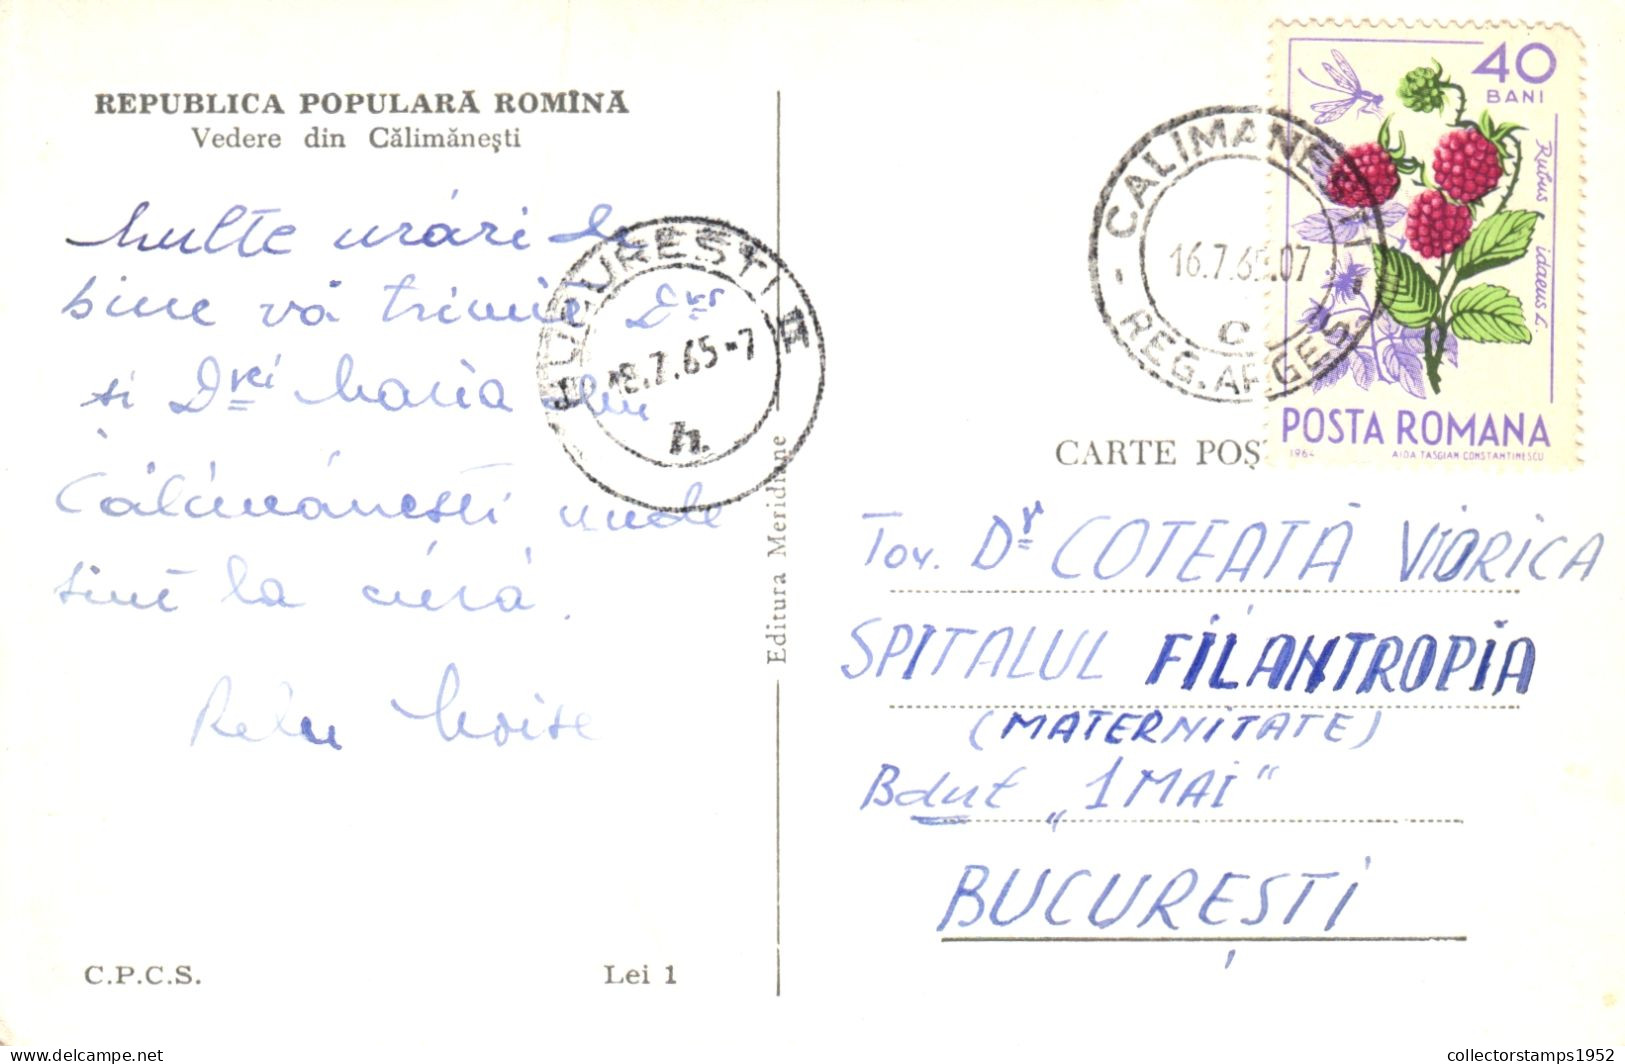 REPUBLICA POPULARĂ ROMÎNĂ
Vedere din Călimănești
Multe urări de
bine vă trimit Dvs
si Drei Maria din
Călimănești unde
sînt la cură.
Relu Moise
C.P.C.S.
Lei 1
Editura Meridiane
BUCUREȘTI II
18.7.65-7
h.
CALIMANESTI
16.7.65.07
c
REG. ARGES
40
BANI
Rubus idaeus L.
POSTA ROMANA
1964
AIDA TASGIAN CONSTANTINESCU
CARTE POȘ
Tov. Dr COTEATĂ VIORICA
SPITALUL FILANTROPIA
(MATERNITATE)
Bdul „1 MAI"
BUCUREȘTI
collectorstamps1952
delcampe.net